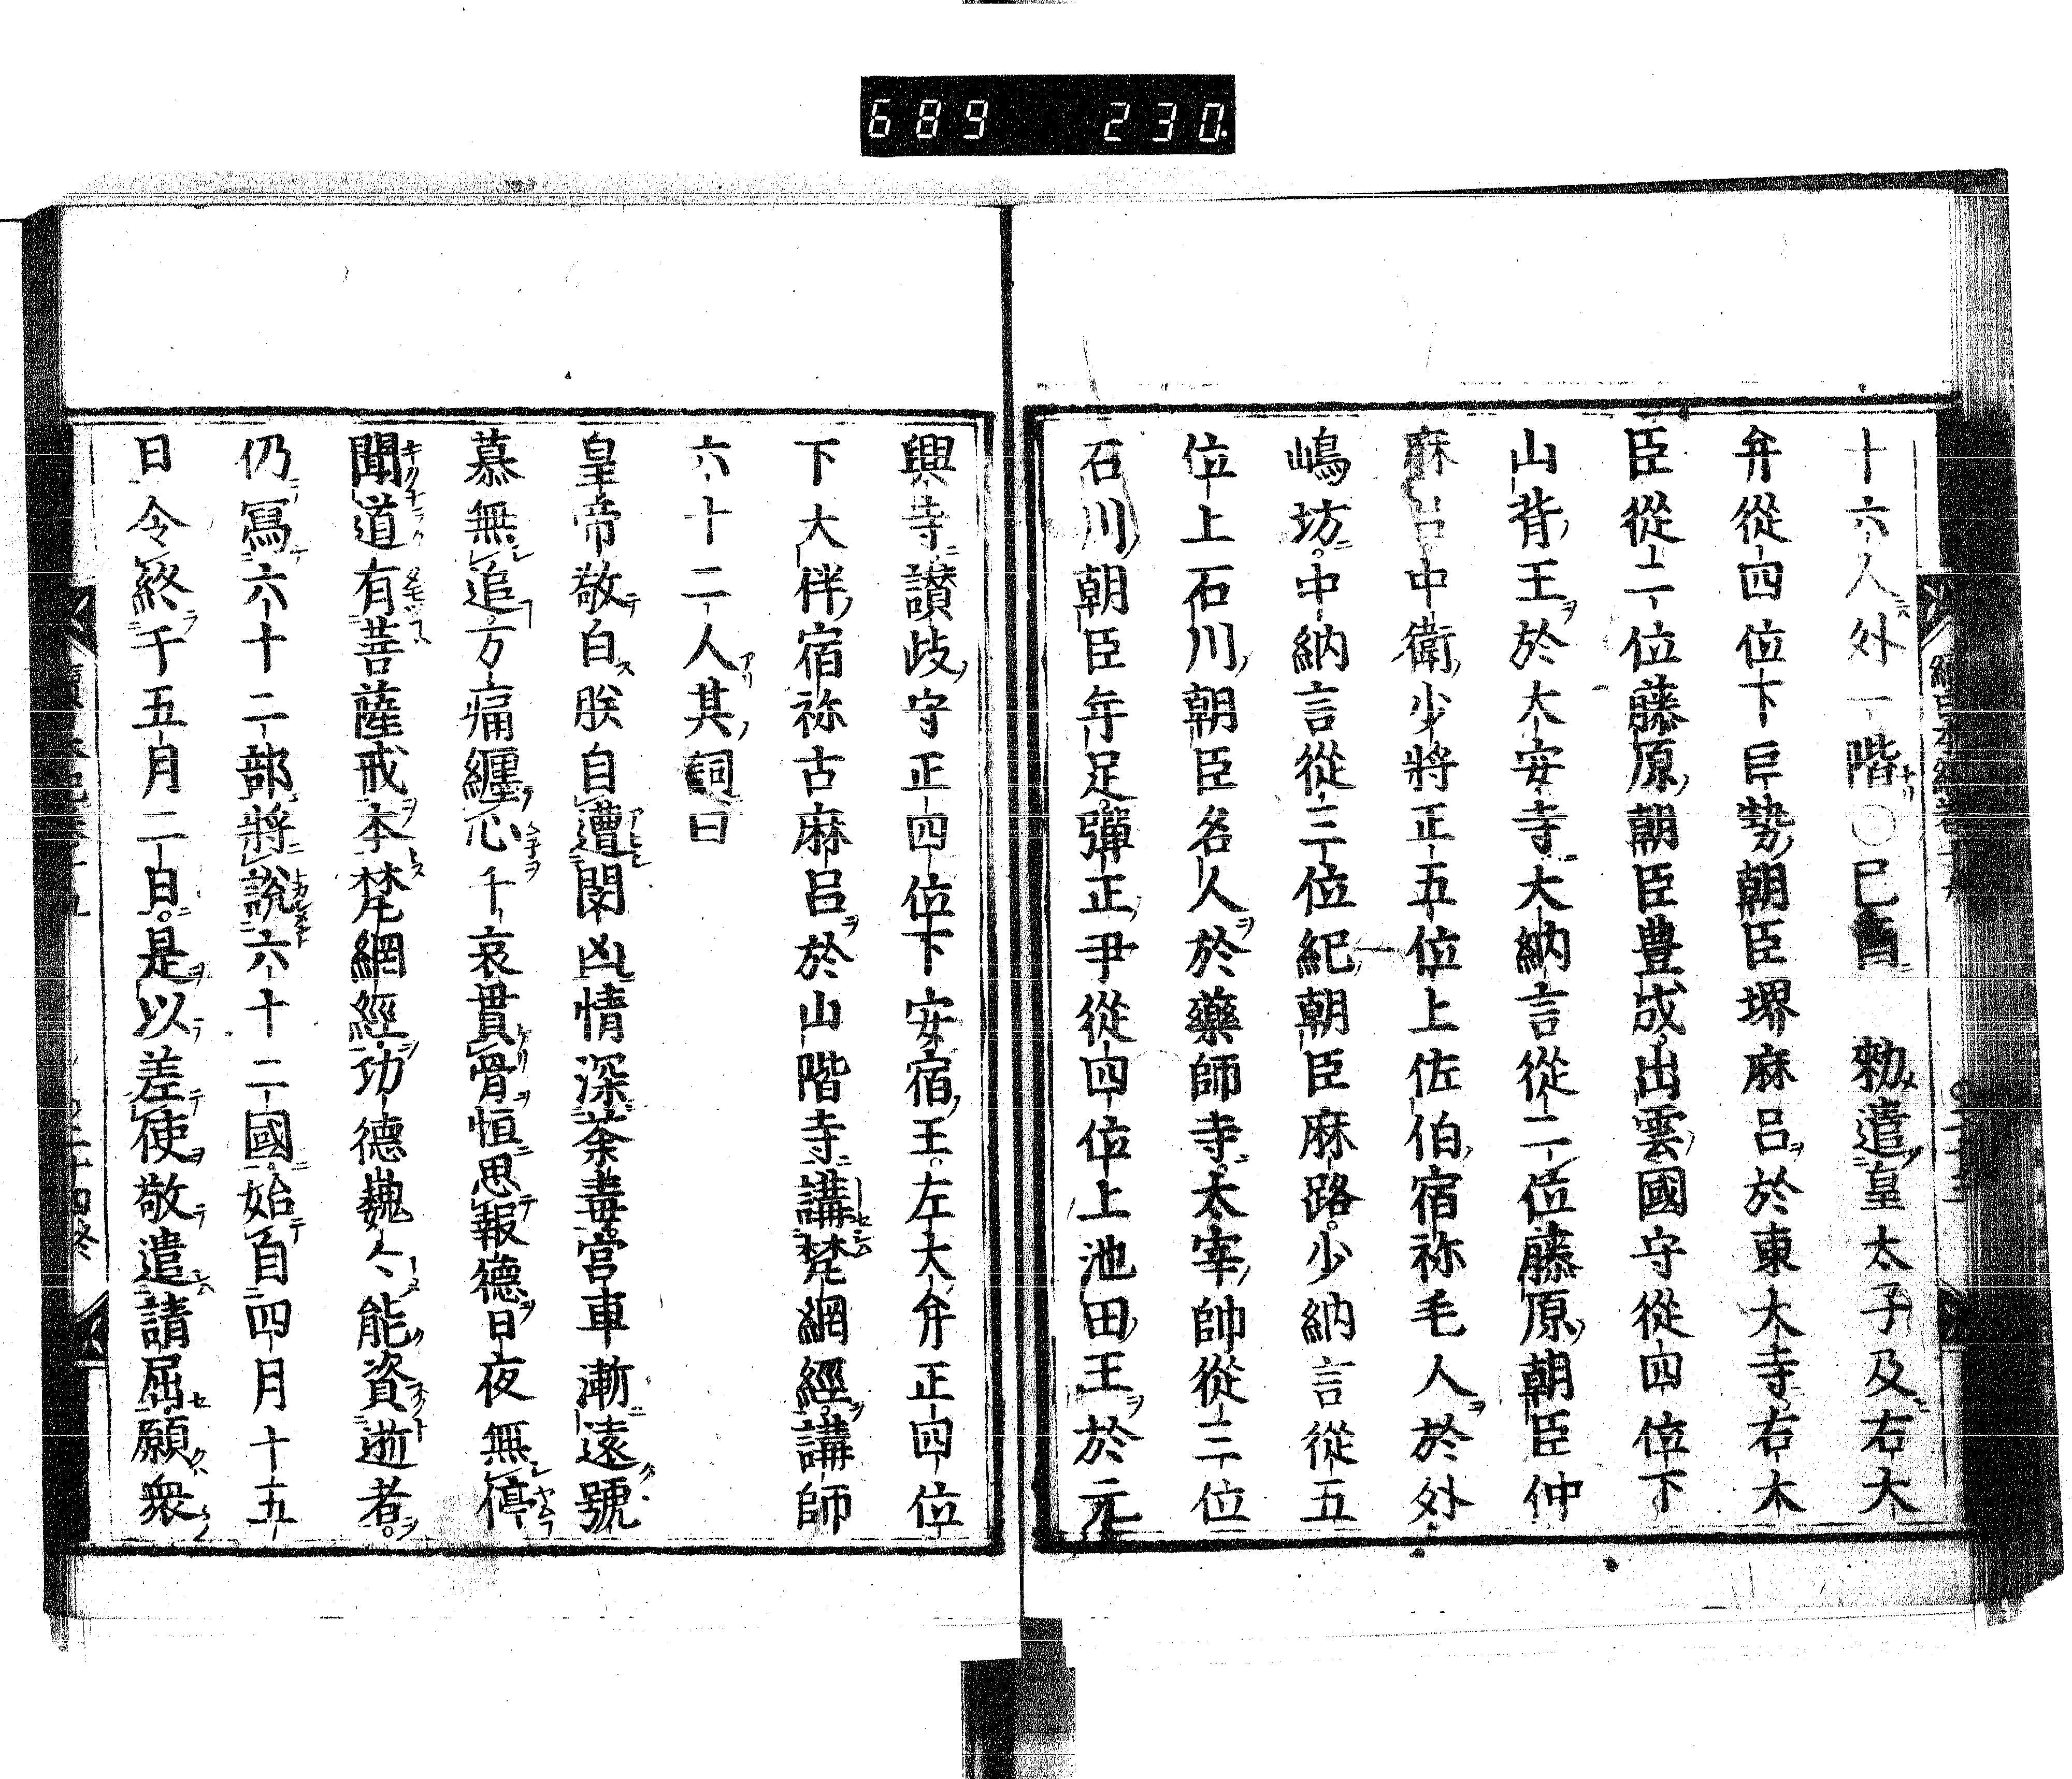 689 230.
十六人外一階○己酉 勅遣皇太子及右大
弁從四位下巨勢朝臣堺麻呂於東大寺右大
臣從二位藤原朝臣豊成出雲國守從四位下
山背王於大安寺大納言從二位藤原朝臣仲
麻呂中衛少將正五位上佐伯宿祢毛人於外
嶋坊中納言從三位紀朝臣麻路少納言從五
位上石川朝臣名人於藥師寺太宰帥從三位
石川朝臣年足彈正尹從四位上池田王於元
興寺讃岐守正四位下安宿王左大弁正四位
下大伴宿祢古麻呂於山階寺講梵網經講師
六十二人其詞曰
皇帝敬白朕自遭閔凶情深荼毒宮車漸遠號
慕無追万痛纏心千哀貫骨恒思報德日夜無停
聞道有菩薩戒本梵網經功德巍々能資逝者
仍冩六十二部將說六十二國始自四月十五
日令終于五月二日是以差使敬遣請屈願衆